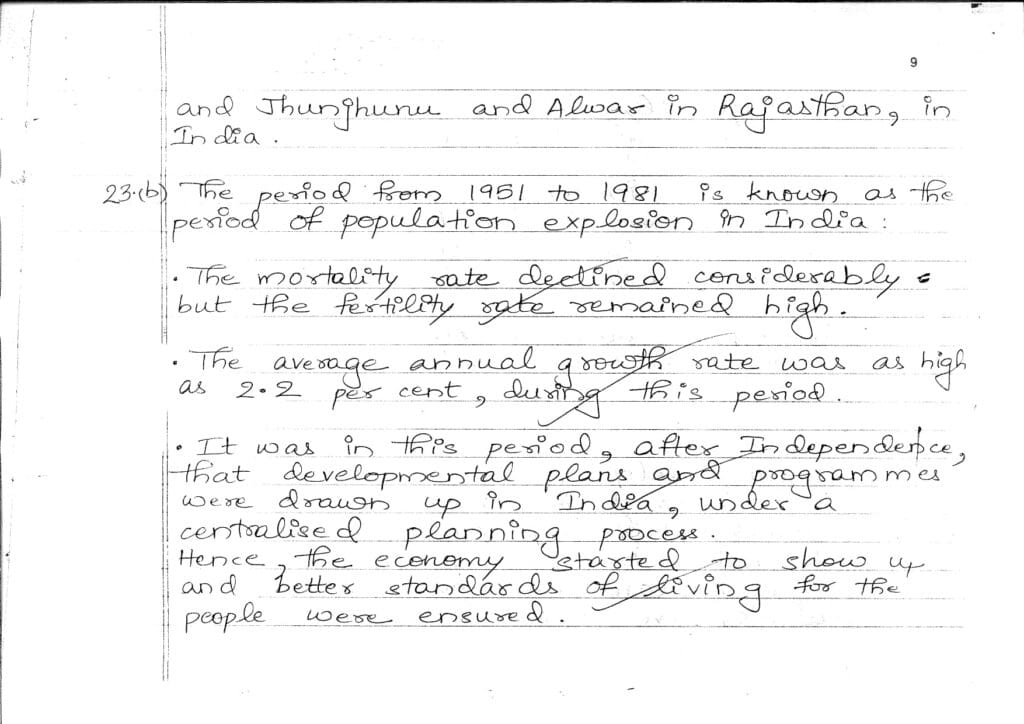 9
and Jhunjhunu and Alwar in Rajasthan, in
India.
23.(b) The period from 1951 to 1981 is known as the
period of population explosion in India:
• The mortality rate declined considerably
but the fertility rate remained high.
• The average annual growth rate was as high
as 2.2 per cent, during this period.
• It was in this period, after Independence,
that developmental plans and programmes
were drawn up in India, under a
centralised planning process.
Hence, the economy started to show up
and better standards of living for the
people were ensured.